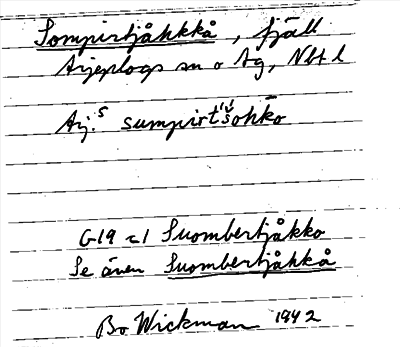 Sompirtjåhkkå, fjäll
Arjeplogs sn o tg, Nbt l
Arj.⁵ sumpirt'šohkō
G19 =1 Suombertjåkko
Se även Suombertjåhkå
Bo Wickman 1942